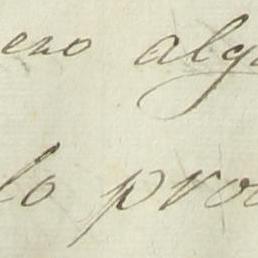 eno alg
lo pro